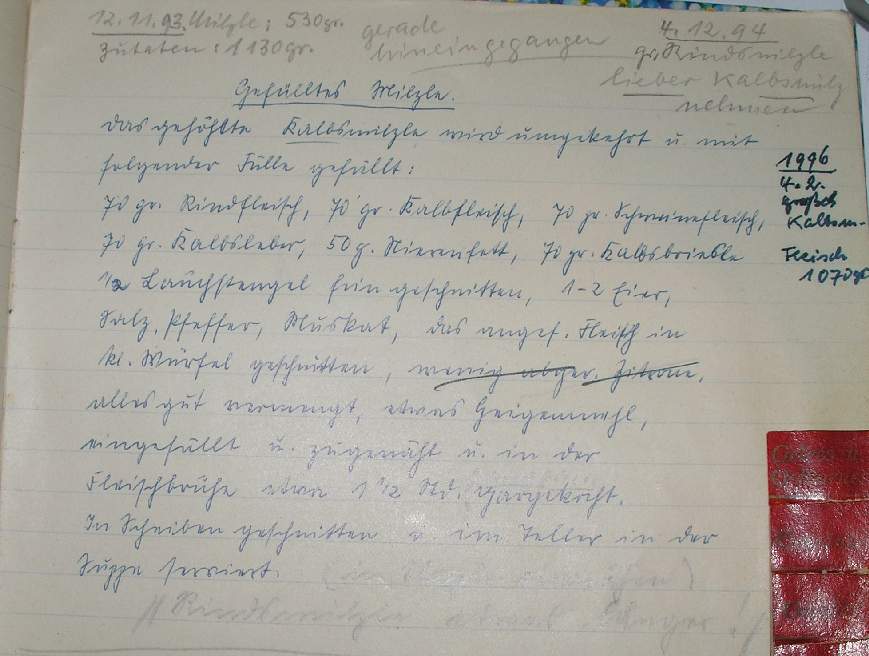 12.11.93. Milzle: 530gr.
Zutaten: 1130gr.
gerade
hineingegangen
4.12.94
gr. Rindsmilzle
lieber Kalbsmilz
nehmen
Gefülltes Milzle.
das gehöhlte Kalbsmilzle wird umgekehrt u. mit
folgender Fülle gefüllt:
70 gr. Rindfleisch, 70 gr. Kalbfleisch, 70 gr. Schweinefleisch,
70 gr. Kalbsleber, 50 g. Nierenfett, 70 gr. Kalbsbriesle
1/2 Lauchstengel fein geschnitten, 1-2 Eier,
Salz, Pfeffer, Muskat, das angef. Fleisch in
kl. Würfel geschnitten, wenig abger. Zitrone,
alles gut vermengt, etwas
eingefüllt u. zugenäht u. in der
Fleischbrühe etwa 1 1/2 Std. gargekocht.
In Scheiben geschnitten u. im Teller in der
Suppe serviert.
Rindsmilzle etwas länger!
1996
4.2.
Kalbsm.
Fleisch
1070gr